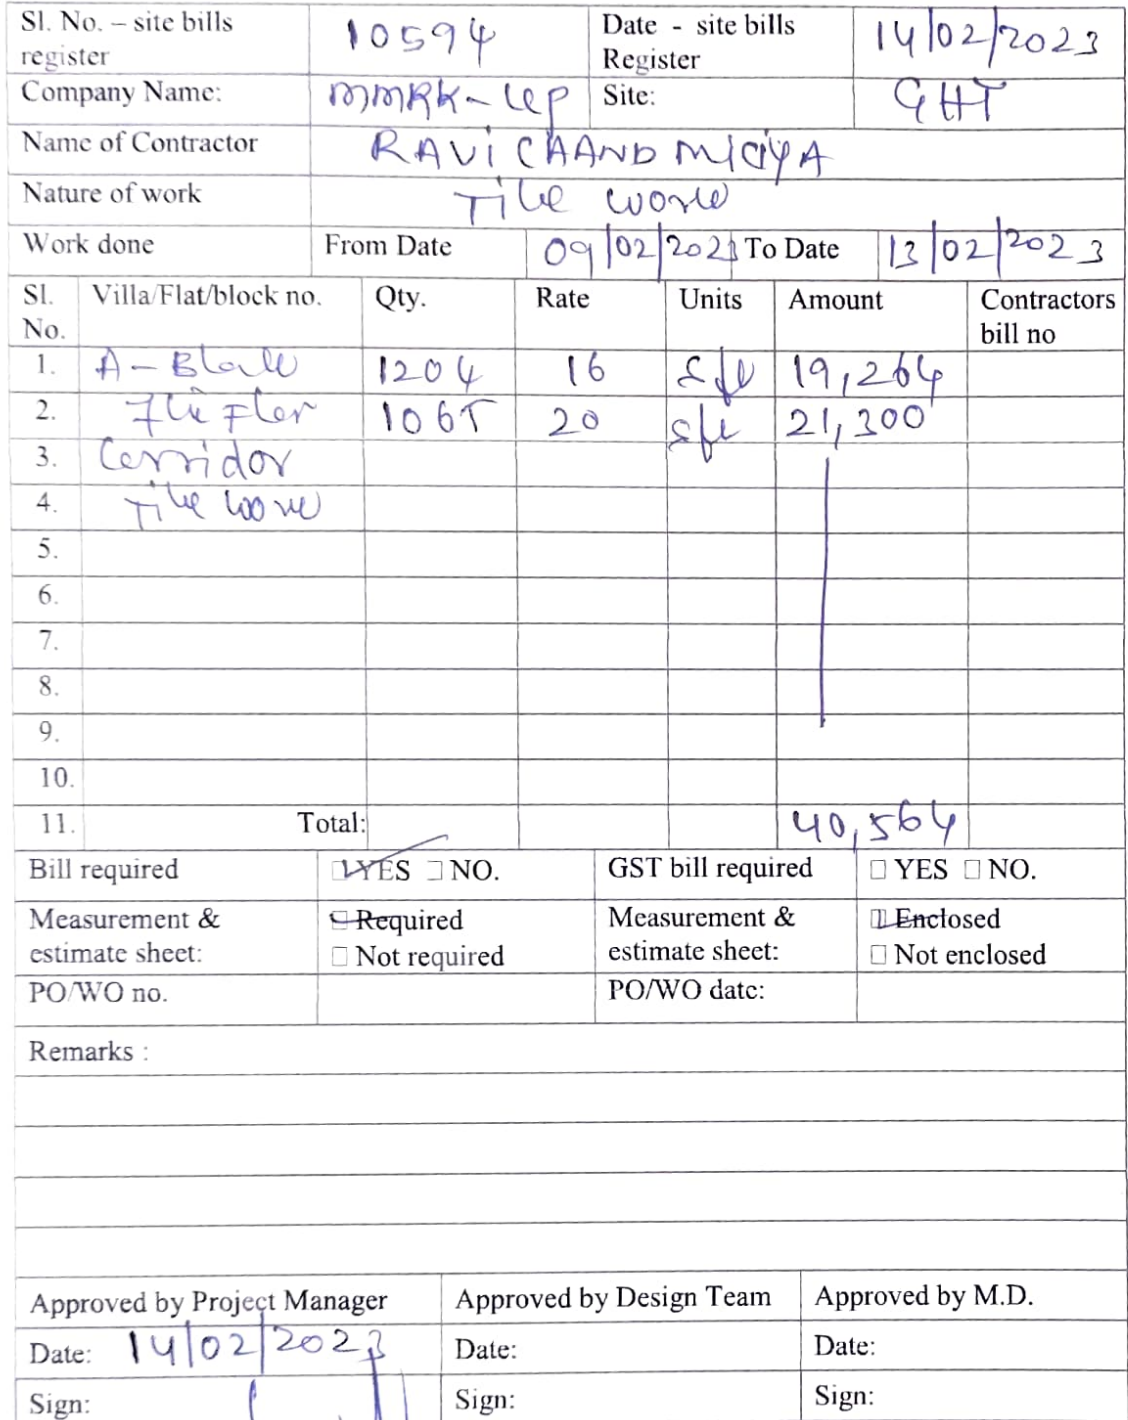 Sl. No. – site bills register 10594 Date - site bills Register 14/02/2023
Company Name: MMRK-LLP Site: GHT
Name of Contractor RAVI CHAAND
Nature of work Tile work
Work done From Date 09/02/2023 To Date 13/02/2023
Sl. No. Villa/Flat/block no. Qty. Rate Units Amount Contractors bill no
1. A-Block 1204 16 sft 19,264
2. 1065 20 sft 21,300
3. Corridor
4. Tile work
5.
6.
7.
8.
9.
10.
11. Total: 40,564
Bill required YES NO. GST bill required YES NO.
Measurement & estimate sheet: Required Measurement & estimate sheet: Enclosed
Not required Not enclosed
PO/WO no. PO/WO date:
Remarks :
Approved by Project Manager Approved by Design Team Approved by M.D.
Date: 14/02/2023 Date: Date:
Sign: Sign: Sign: